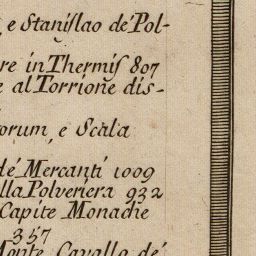 e Stanislao de Pol-
re in Thermis 807
e al Torrione dis-
orum, e Scala
dé Mercanti 1009
lla Polveriera 932
Capite Monache
357
Monte Cavallo dé